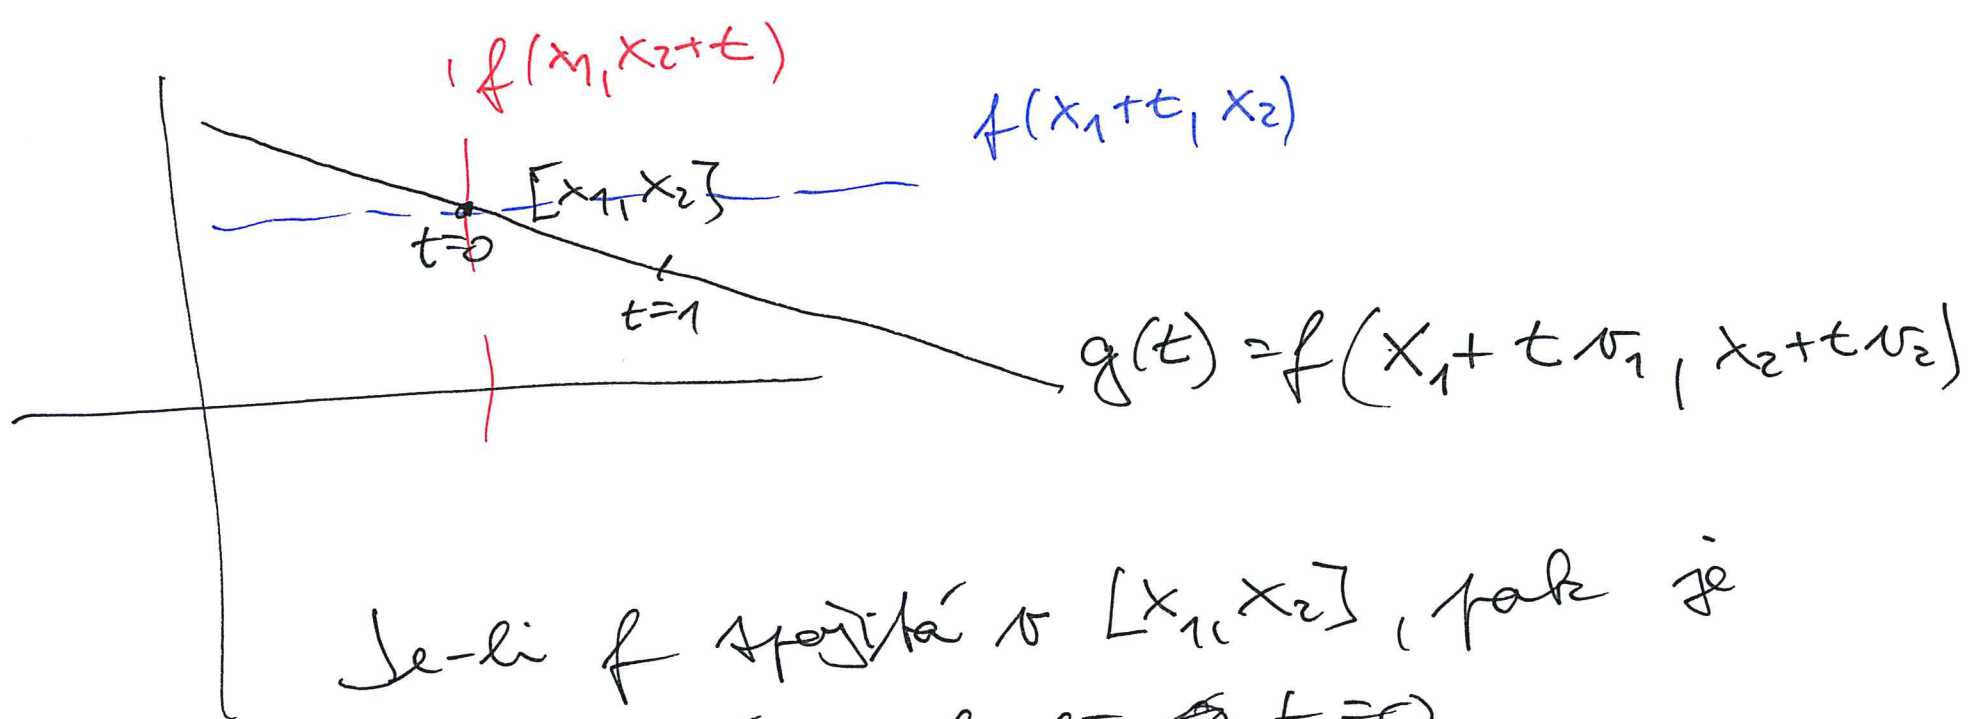 f(x₁, x₂+t)
f(x₁+t, x₂)
[x₁, x₂]
t=0
t=1
g(t) = f(x₁ + t v₁, x₂ + t v₂)
Je-li f spojitá v [x₁, x₂], pak je
t=0